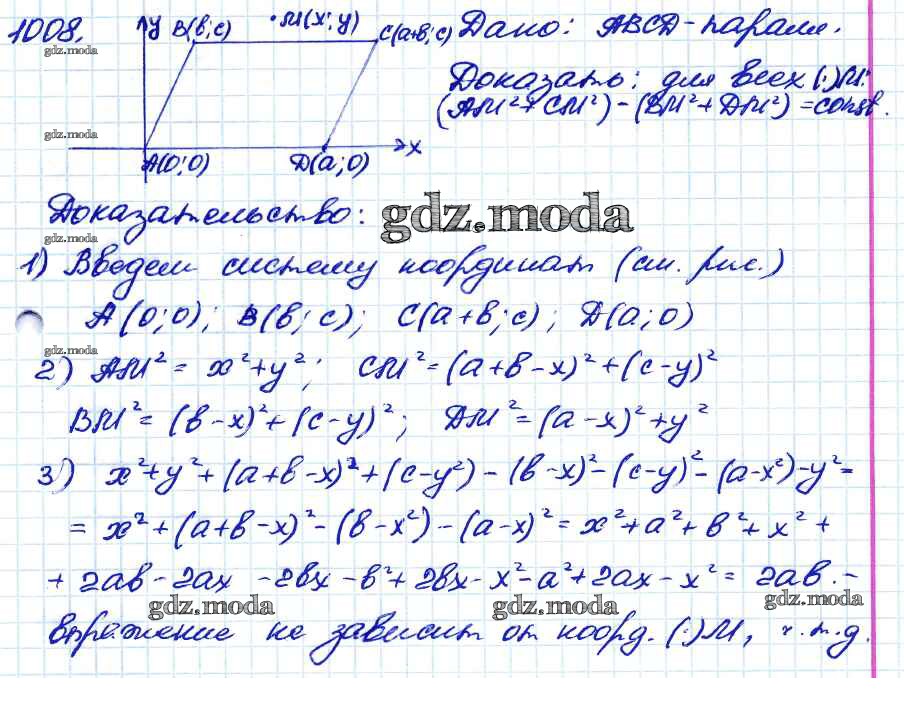 1008. y B(в; с) ·M(x; y) C(a+в; c) Дано: ABCD - паралл.
gdz.moda
Доказать: для всех (·)M:
(AM²+CM²) - (BM²+DM²) = const.
gdz.moda
A(0;0) D(a;0) x
Доказательство: gdz.moda
gdz.moda
1) Введем систему координат (см. рис.)
A(0;0); B(в; с); C(a+в; c); D(a; 0)
gdz.moda
2) AM² = x²+y²; CM² = (a+в-x)²+(c-y)²
BM² = (в-x)²+(c-y)²; DM² = (a-x)²+y²
3) x²+y²+(a+в-x)²+(c-y²) - (в-x)² - (c-y)² - (a-x²) - y² =
= x²+(a+в-x)² - (в-x²) - (a-x)² = x²+a²+в²+x²+
+ 2aв - 2ax - 2вx - в² + 2вx - x² - a² + 2ax - x² = 2aв. -
gdz.moda gdz.moda gdz.moda
выражение не зависит от коорд. (·)M, ч.т.д.